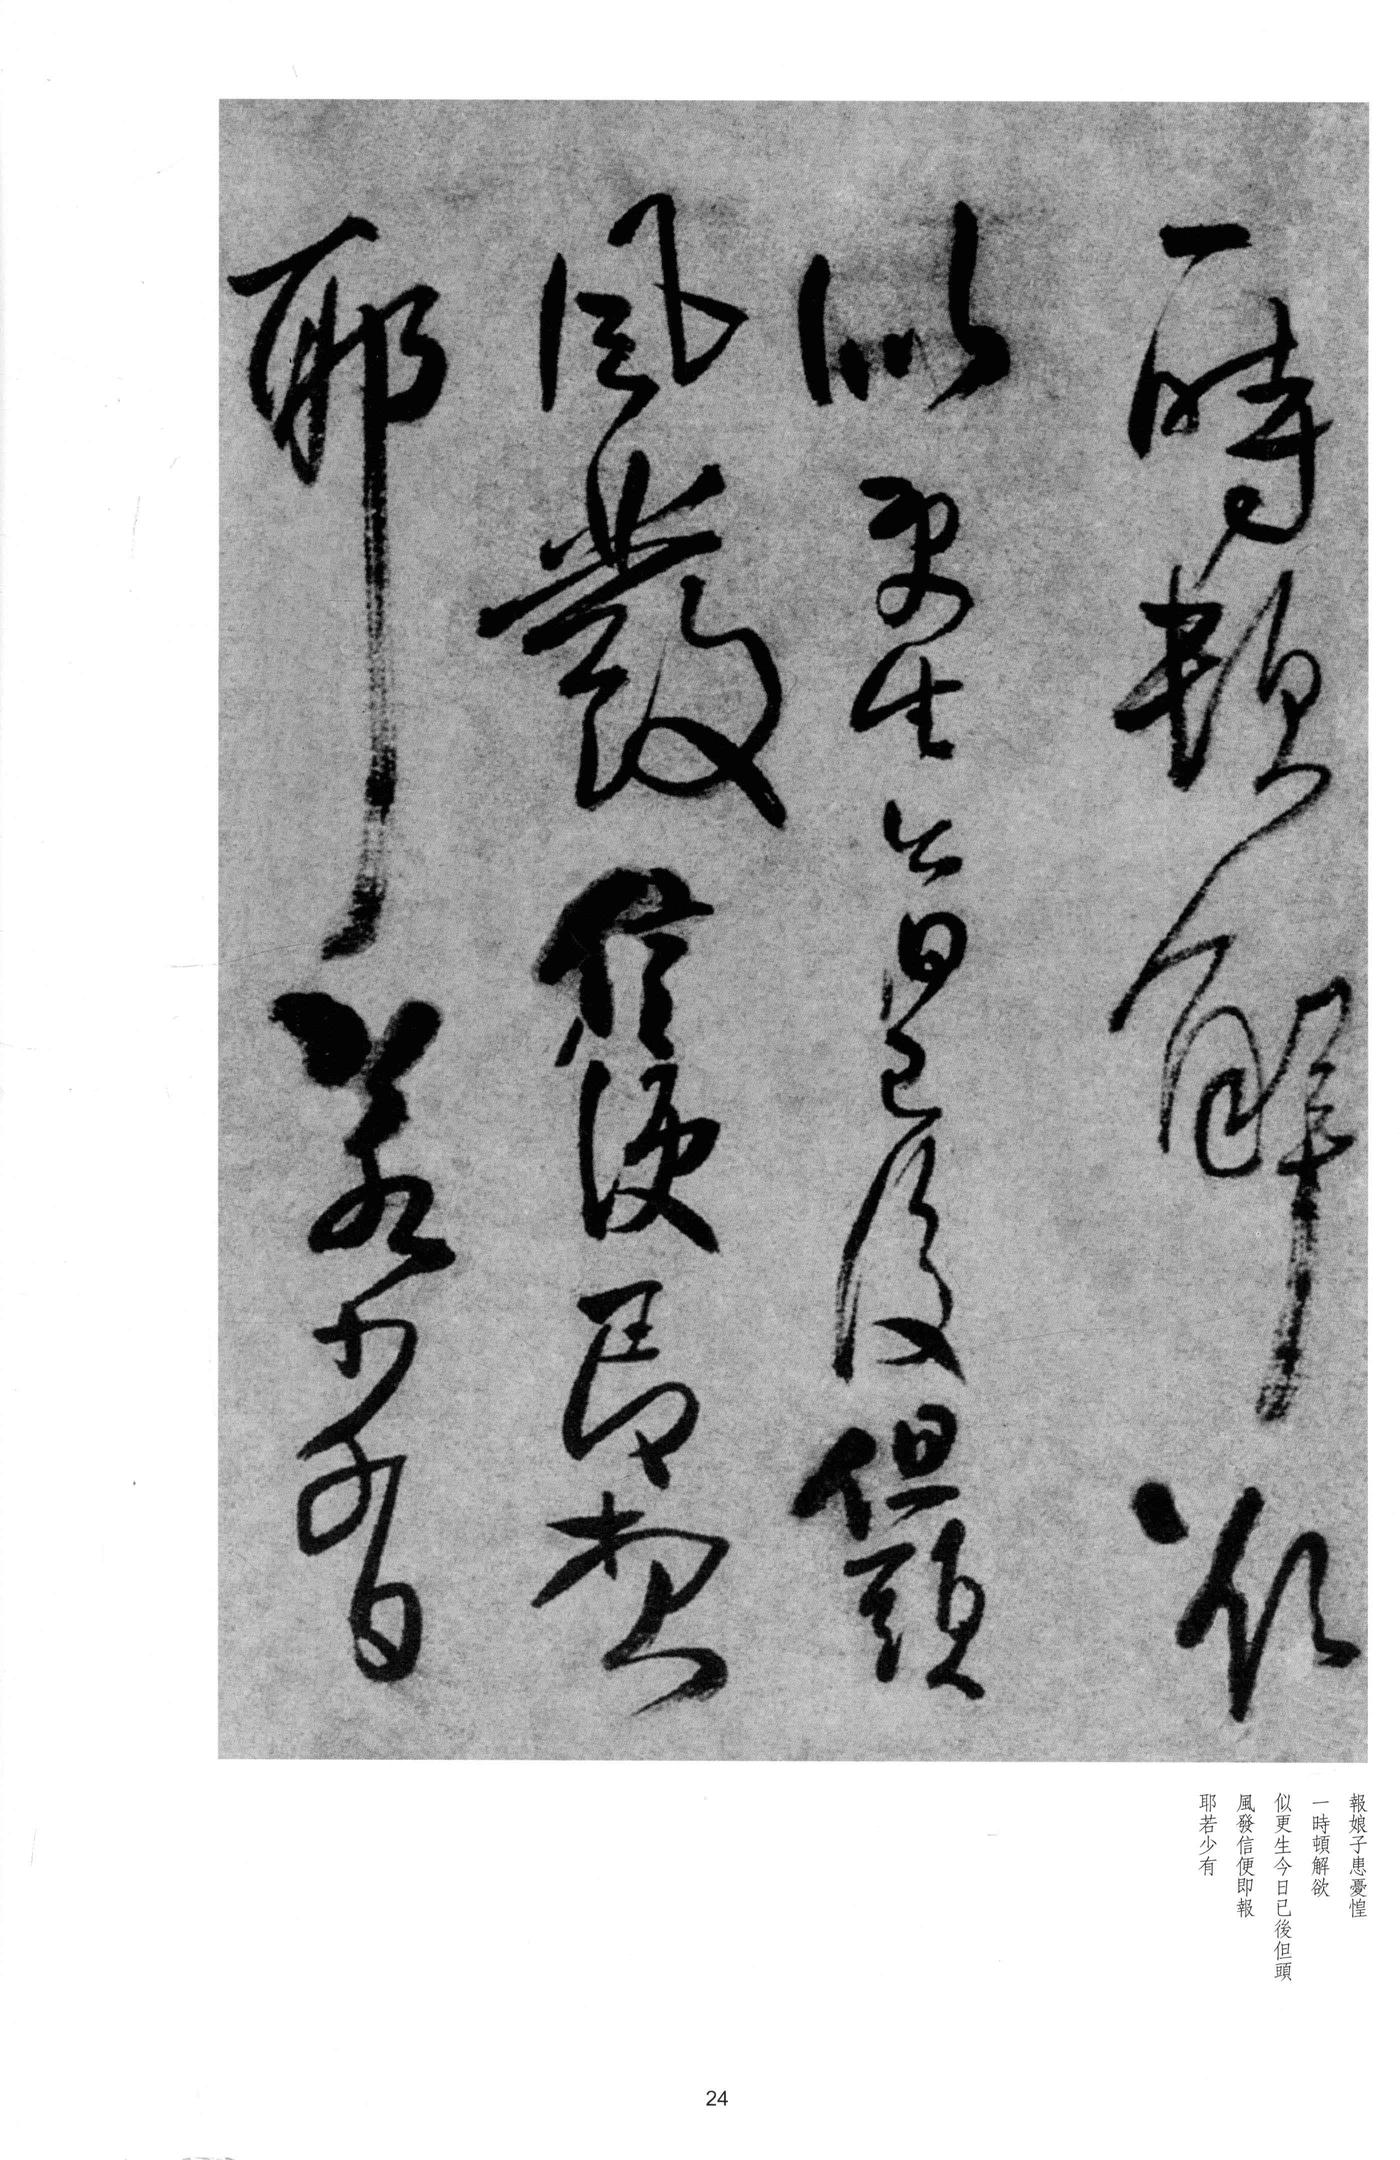 一時頓解欲
似更生今日已後但頭
風發信便即報
耶若少有
報娘子患憂惶
一時頓解欲
似更生今日已後但頭
風發信便即報
耶若少有
24